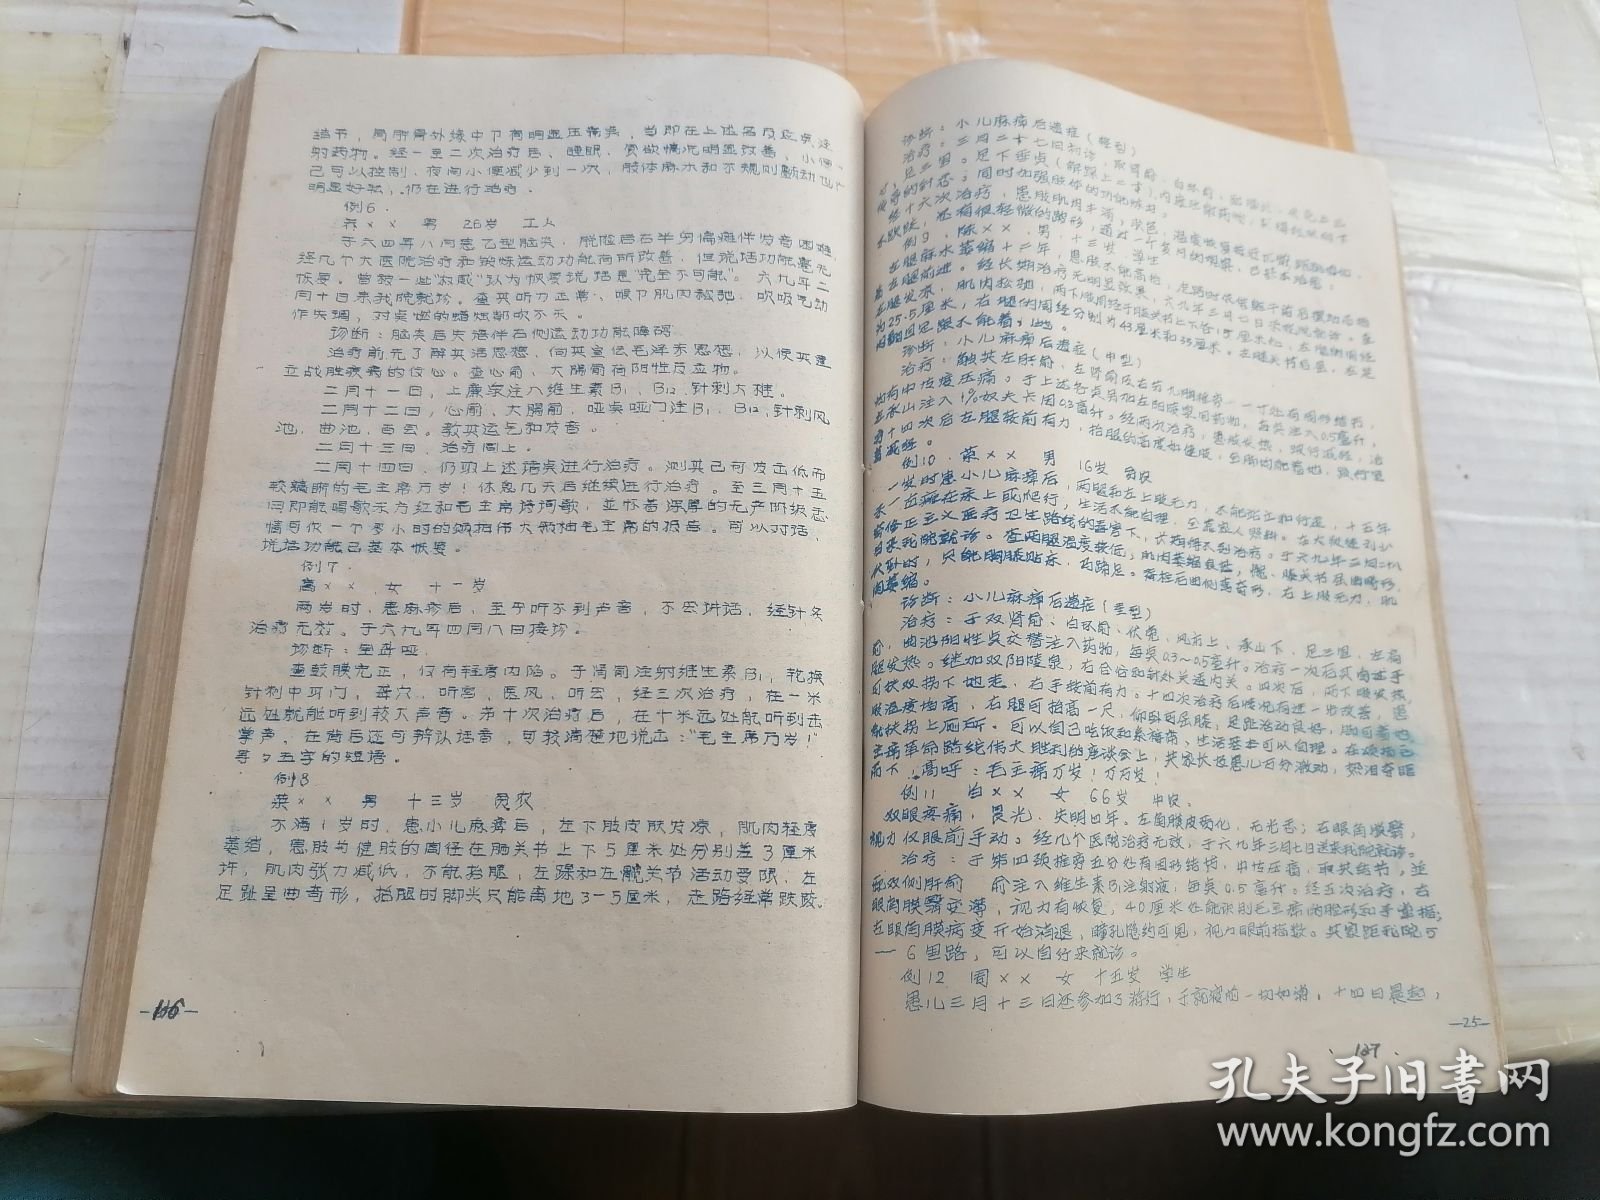 结节，肩胛骨外缘中下有明显压痛点，当即在上述各反应点注
射药物。经一至二次治疗后、睡眠、食欲情况明显改善、小便
己可以控制，夜间小便减少到一次，肢体麻木和不规则颤动也
明显好转，仍在进行治疗．
例6．
××　男　26岁　工人
于六四年八月患乙型脑炎，脱险后右半身偏瘫伴发音困难，
经几个大医院治疗和锻炼运动功能有所改善，但说话功能毫无
恢复。曾被一些"权威"认为恢复说话是"完全不可能"。六九年二
月十日来我院就诊。查其听力正常、喉下肌肉松弛，吹吸气动
作失调，对点燃的蜡烛都吹不灭。
诊断：脑炎后失语伴右侧运动功能障碍．
治疗前先了解其活思想，向其宣传毛泽东思想，以使其建
立战胜疾病的信心。查心俞、大肠俞有阳性反应物。
二月十一日，上廉泉注入维生素B₁、B₁₂、针刺大椎．
二月十二日，心俞、大肠俞，哑点哑门注B₁、B₁₂、针刺风
池，曲池，合谷。教其运气和发音。
二月十三日，治疗同上．
二月十四日，仍取上述穴点进行治疗。则其已可发出低而
较清晰的毛主席万岁！休息几天后继续进行治疗．至三月十五
日即能唱歌东方红和毛主席诗词歌，并怀着深厚的无产阶级感
情录放一个多小时的颂扬伟大领袖毛主席的报告。可以对话．
说话功能已基本恢复。
例7．
高××　女　十一岁
两岁时，患麻疹后，至于听不到声音，不会讲话，经针灸
治疗无效。于六九年四月八日接诊。
诊断：聋哑．
查鼓膜完正，仅有轻度内陷。于肾俞注射维生素B₁，轮换
针刺中耳门，聋穴，听宫，医风，听会，经三次治疗，在一米
远处就能听到较大声音。第十次治疗后，在十米远处能听到击
掌声，在背后还可辨认话音，可较清楚地说出："毛主席万岁！"
等々五字的短语。
例8
蔡××　男　十三岁　贫农
不满1岁时，患小儿麻痹后，左下肢皮肤发凉，肌肉轻度
萎缩，患肢与健肢的周径在膝关节上下5厘米处分别差3厘米
许，肌肉张力减低，不能抬腿，左踝和左髋关节活动受限，左
足趾呈曲奇形，抬腿时脚尖只能离地3-5厘米，走路经常跌跤．
—116—
诊断：小儿麻痹后遗症（轻型）
治疗：三月二十七日初诊，取肾俞，白环俞，
足三里。足下垂点（解踩上二寸），
的针感。同时加强肢体的功能练习。
经十六次治疗，患肢肌肉丰满，肤色，温度恢复接近正常
还有很轻微的跛形，通过一个多月的观察，已基本治愈．
例9．陈××．男．十三岁．学生
左腿麻木萎缩十二年，患肢不能高抬，走路时
着左腿前进。经长期治疗无明显效果，六九年三月七日来我院就诊。查
左腿发凉，肌肉松弛，两下肢周径于膝关节上下各15厘米处，左腿周径
为25.5厘米，右腿的周径分别为43厘米和33厘米。左膝关节后屈，左足
内翻且足跟不能着地。
诊断：小儿麻痹后遗症（中型）
治疗：触其左肝俞、左肾俞及左右九腰椎旁一一寸处有圆形结节，
均有中度度压痛。于上述各点另加左阳陵泉用药物，每点注入0.5毫升，
左承山注入1%奴夫卡因0.3毫升。经两次治疗，患肢发热，跛行减轻，治
疗十四次后左腿较前有力，抬腿的高度如健肢，全脚均能着地，跛行显
著减轻。
例10．蔡××　男　16岁　贫农
一岁时患小儿麻痹后，两腿和左上肢无力，不能站立和行走，十五年
来一直瘫在床上或爬行，生活不能自理，全靠家人照料。在大叛徒刘少
奇修正主义医疗卫生路线的毒害下，长期得不到治疗。于六九年二月二十八
日来我院就诊。查两腿温度较低，肌肉萎缩良显，髋、膝关节屈曲畸形，
伏卧时，只能胸膝贴床．马蹄足。脊柱后凸侧弯奇形，右上肢无力，肌
肉萎缩。
诊断：小儿麻痹后遗症（重型）
治疗：于双肾俞、白环俞、伏兔、风市上、承山下、足三里，左肩
俞，曲池阳性点交替注入药物，每点0.3～0.5毫升。治疗一次后其自述手
腿发热。继加双阳陵泉，右合谷和针外关透内关。四次后，两下肢发热，
可扶双拐下地走，右手较前有力。十四次治疗后情况有进一步改善，患
肢温度增高，右腿可抬高一尺，仰卧可屈膝，足趾活动良好，脚可着地
能扶拐上厕所。可以自己吃饭和系裤带、生活基本可以自理。在颂扬毛
主席革命路线伟大胜利的座谈会上，其家长及患儿万分激动，热泪夺眶
而下．高呼：毛主席万岁！万万岁！
例11　白××　女　66岁　中农．
双眼疼痛，畏光．失明四年。左角膜皮药化，无光舌；右眼角膜翳，
视力仅眼前手动。经几个医院治疗无效，于六九年三月七日送来我院就诊。
治疗：于第四颈椎旁五分处有圆形结节，并传压痛，取其结节，並
配双侧肝俞　俞注入维生素B₁注射液，每点0.5毫升。经五次治疗，右
眼角膜翳变薄，视力有恢复，40厘米处能识别毛主席的脸形和手掌指；
左眼角膜病变开始消退，瞳孔隐约可见，视力眼前指数。其家距我院5
—6里路，可以自行来就诊。
例12　周××　女　十五岁　学生
患儿三月十三日还参加了游行，于就寝前一切如常．十四日晨起，
—25—
127
孔夫子旧书网
www.kongfz.com